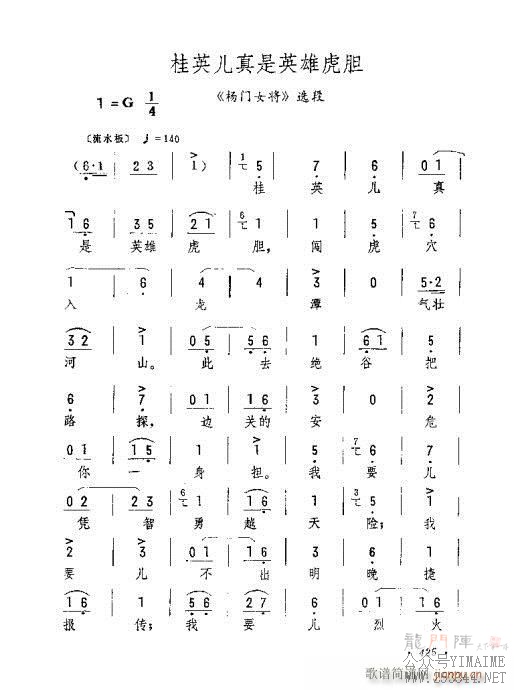 桂英儿真是英雄虎胆
《杨门女将》选段
1=G 1/4
〔流水板〕♩=140
(6·1 | 23 | 1) | 1/七 5 | 7 | 6 | 01 |
桂 英 儿 真
16 | 35 | 21 | 6/七 1 | 01 | 5 | 7/七 6 |
是 英雄 虎 胆, 闯 虎 穴
1 | 6 | 4 | 4 | 3 | 0 | 5·2 |
入 龙 潭 气壮
32 | 1 | 05 | 5 | 1 | 61 | 5 |
河 山。 此 去 绝 谷 把
6 | 7 | 01 | 16 | 3 | 0 | 2 |
路 探, 边 关的 安 危
01 | 11 | 1 | 3 | 7/七 6 | 6 | 7 |
你 一 身 担。 我 要 儿
02 | 22 | 6/七 1 | 16 | 1 | 3/七 5 | 5 |
凭 智 勇 越 天 险; 我
2 | 3 | 01 | 1 | 03 | 1 | 2 |
要 儿 不 出 明 晚 捷
16 | 1 | 16 | 27 | 6 | 01 | 16 |
报 传; 我 要 儿 烈 火
龍門陣
·425·
公众号YIMAIME
歌谱简谱网
www.253944.net